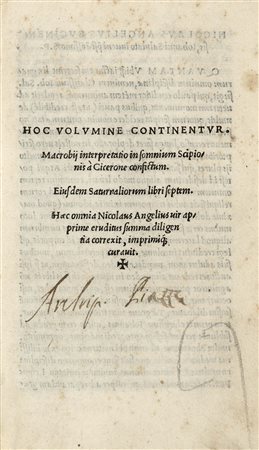 HOC VOLVMINE CONTINENTVR.
Macrobij interpretatio in somnium Scipio/
nis à Cicerone confictum.
Eiusdem Saturnaliorum libri septem.
Hæc omnia Nicolaus Angelius uir ap/
prime eruditus summa diligen
tia correxit, imprimiq;
curauit.
✠
Archip.